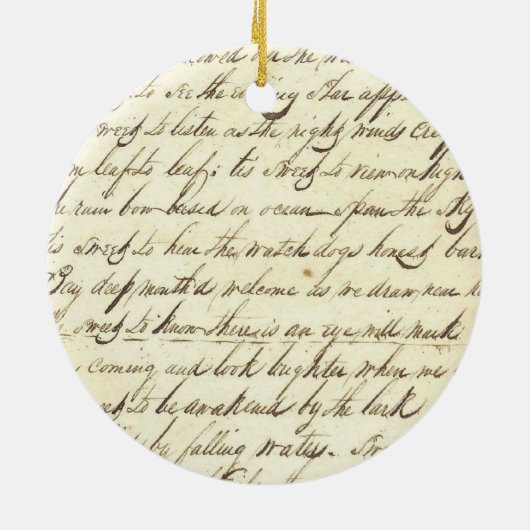 owed on the
to see the evening star app
sweet to listen as the night winds creep
om leaf to leaf: tis sweet to view on high
he rain bow based on ocean span the sky
tis sweet to hear the watch dogs honest bark
Bay deep mouth'd welcome as we draw near h
sweet to know there is an eye will mark
coming and look brighter when we
to be awakened by the lark
by falling waters. Sw